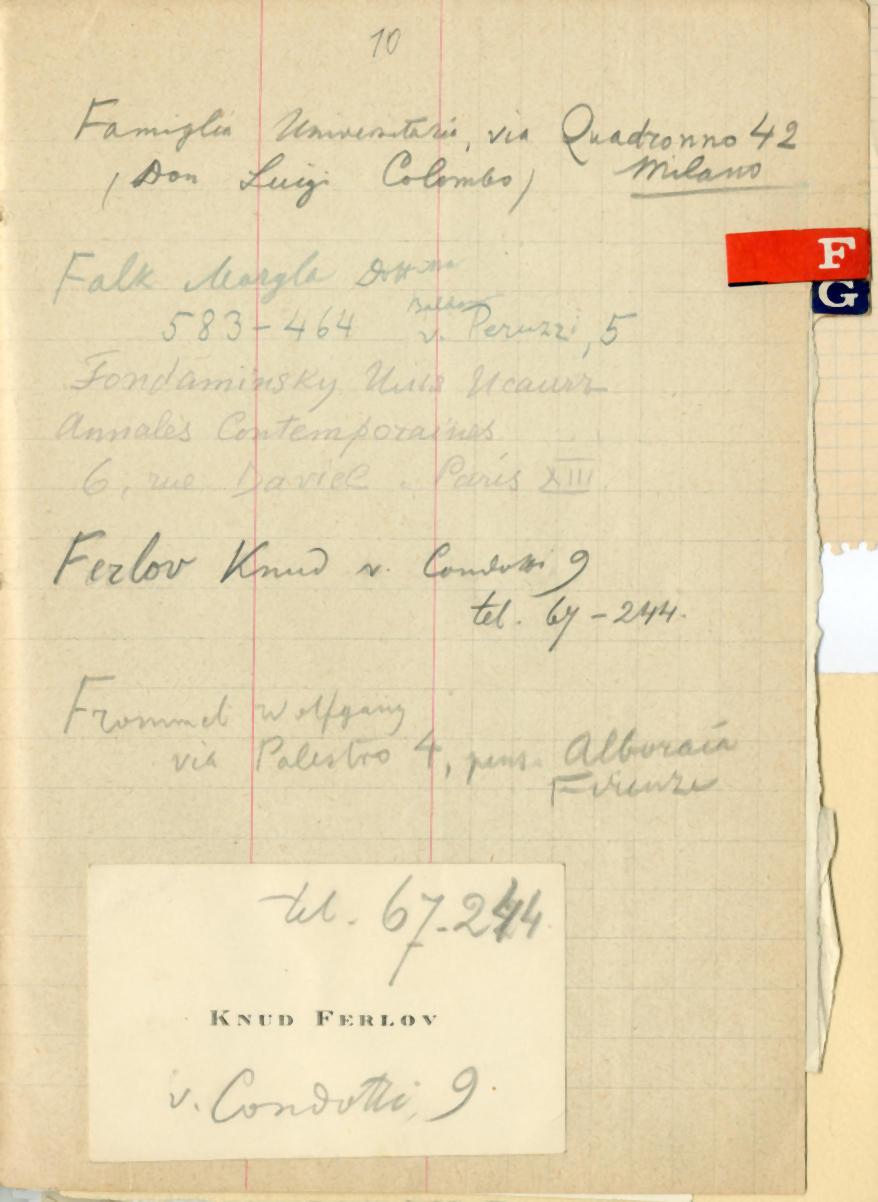 10
Famiglia Universitaria, via Quadronno 42
(Don Luigi Colombo) Milano
F
G
Falk Dott.ssa
583-464 v. Peruzzi, 5
Fondaminsky
Annales Contemporaines
6, rue Daviel. Paris XIII
Ferlov Knud v. Condotti 9
tel. 67-244.
Frommel Wolfgang
via Palestro 4, pens. Alboraia
Firenze
tel. 67-244
KNUD FERLOV
v. Condotti, 9